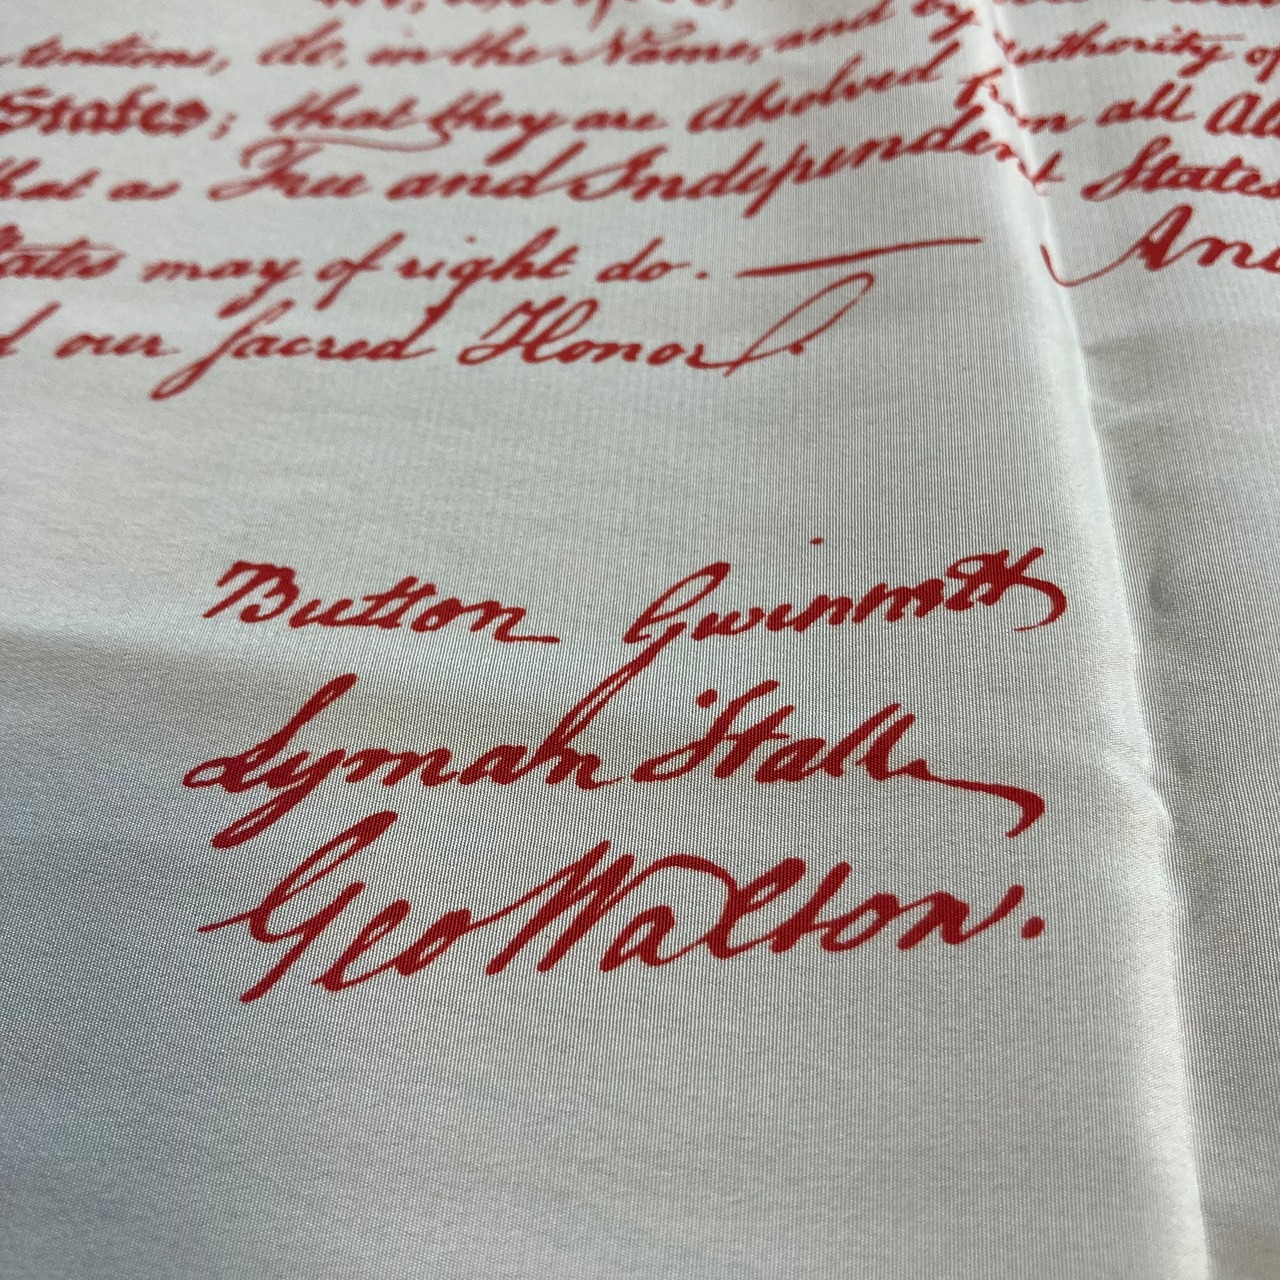 tentions, do, in the Name, and by Authority of
States; that they are Absolved from all All
that as Free and Independent States
States may of right do. — And
our sacred Honor.
Button Gwinnett
Lyman Hall
Geo Walton.